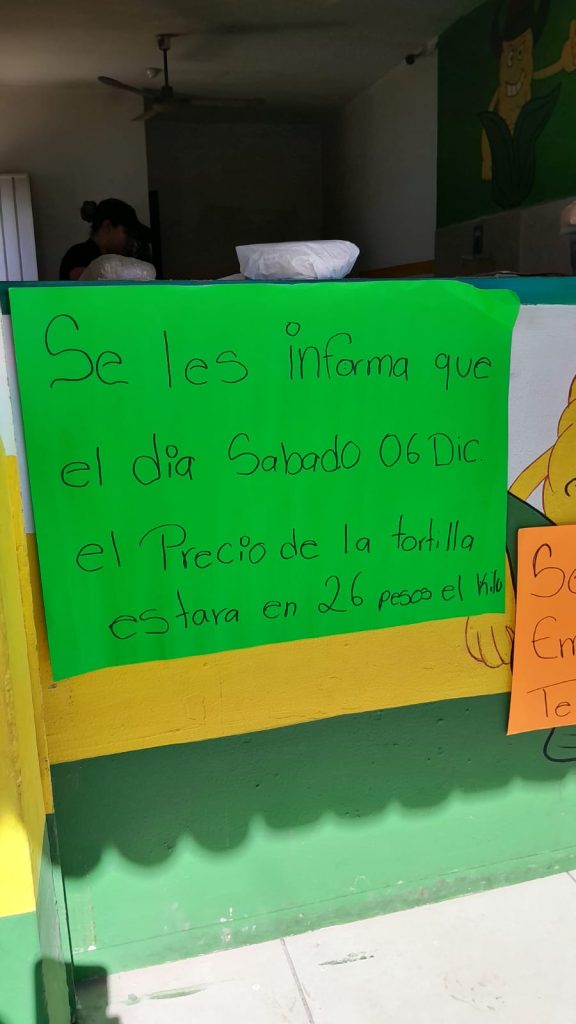 Se les informa que
el dia Sabado 06 Dic.
el Precio de la tortilla
estara en 26 pesos el Kilo
Se
Em
Te